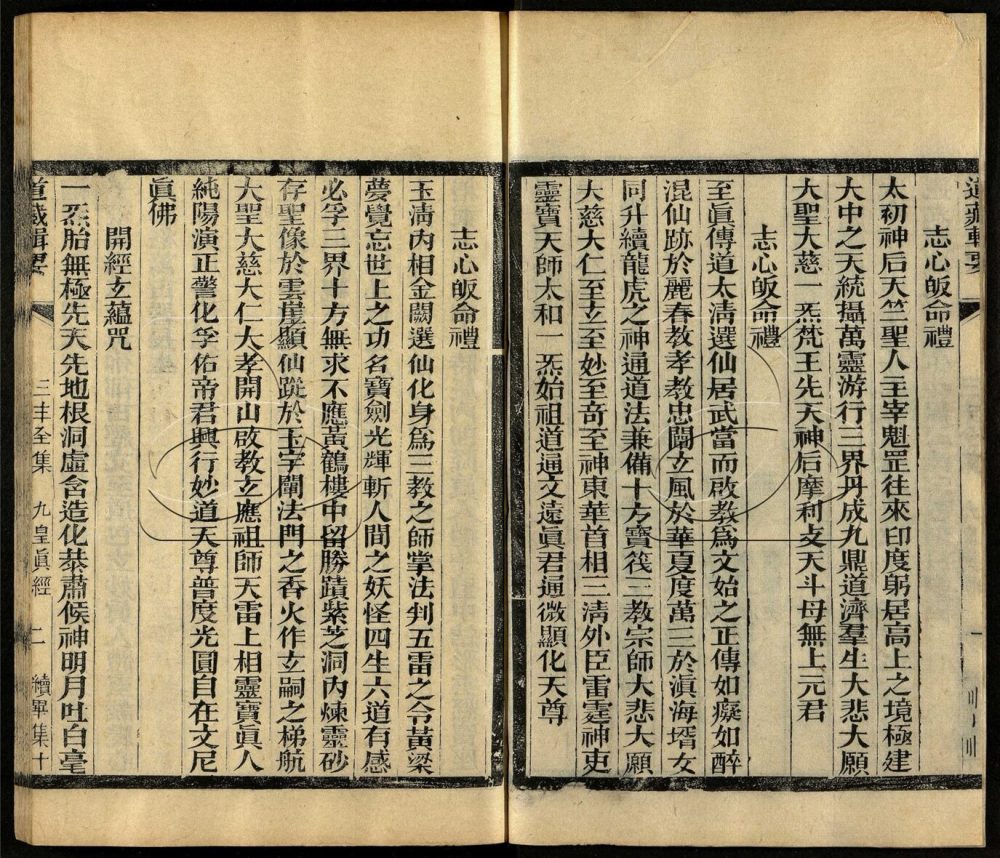 道藏輯要
志心皈命禮
太初神后天竺聖人主宰魁罡往來印度躬居高上之境極建
大中之天統攝萬靈游行三界丹成九鼎道濟羣生大悲大願
大聖大慈一炁梵王先天神后摩利支天斗母無上元君
志心皈命禮
至眞傳道太淸選仙居武當而啟教爲文始之正傳如癡如醉
混仙跡於麗春教孝教忠闡立風於華夏度萬三於滇海壻女
同升續龍虎之神通道法兼備十方寶筏三教宗師大悲大願
大慈大仁至玄至妙至奇至神東華首相三淸外臣雷霆神吏
靈寶天師太和一炁始祖道通文遠眞君通微顯化天尊
志心皈命禮
玉淸內相金闕選仙化身爲三教之師掌法判五雷之令黃梁
夢覺忘世上之功名寶劍光輝斬人間之妖怪四生六道有感
必孚三界十方無求不應黃鶴樓中留勝蹟紫芝洞內煉靈砂
存聖像於雲崖顯仙蹤於玉字闡法門之香火作玄嗣之梯航
大聖大慈大仁大孝開山啟教玄應祖師天雷上相靈寶眞人
純陽演正警化孚佑帝君興行妙道天尊普度光圓自在文尼
眞佛
開經玄蘊咒
一炁胎無極先天先地根洞虛含造化恭肅候神明月吐白毫
道藏輯要
三丰全集 九皇眞經 二 續畢集十